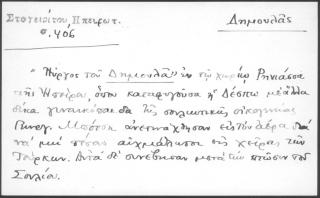 Στοιχεῖα τοῦ Ἠπειρωτ.
Δημουλᾶς
σ. 406
"Πύργος τοῦ Δημουλᾶ" ἐν τῷ χωρίῳ Ρηνιάσσα
τῆς Ἠπείρου, ὅπου καταφυγοῦσα ἡ Δέσπω μὲ ἄλλα
δέκα γυναικόπαιδα τῆς σουλιωτικῆς οἰκογενείας
Γεωργ. Μπότση ἀνετινάχθησαν εἰς τὸν ἀέρα διὰ
νὰ μὴ πέσουν αἰχμάλωτοι εἰς χεῖρας τῶν
Τούρκων. Αὐτὰ δὲ συνέβησαν μετὰ τὴν πτῶσιν τοῦ
Σουλίου.